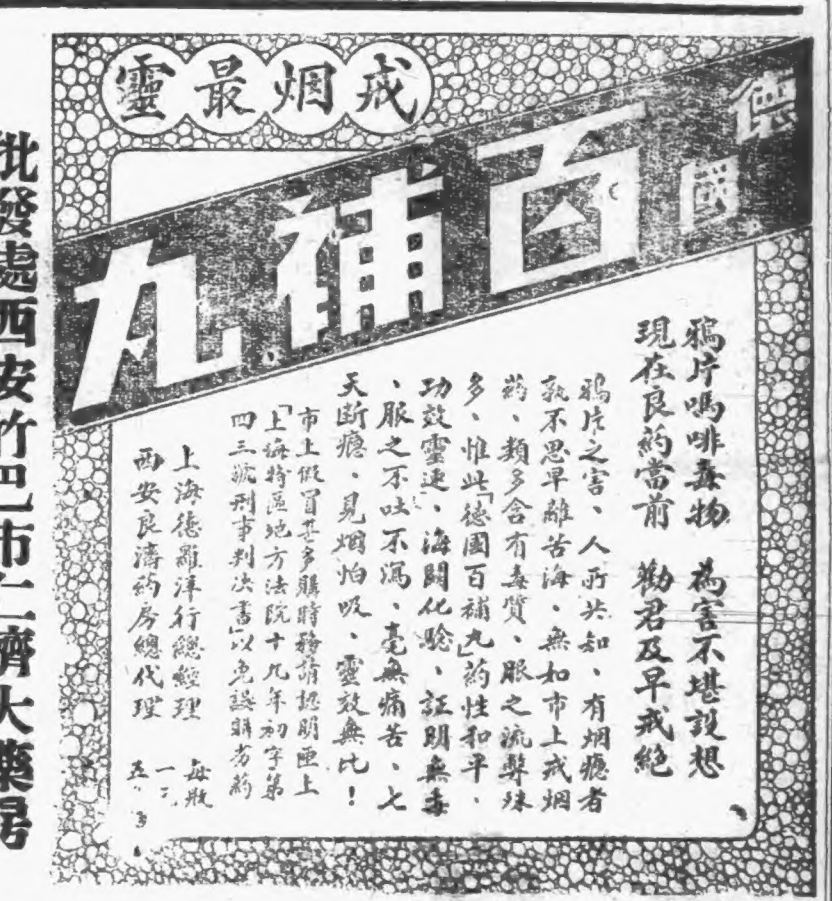 戒烟最靈
德國
百補丸
鴉片嗎啡毒物　為害不堪設想
現在良葯當前　勸君及早戒絕
鴉片之害、人所共知、有烟癮者
孰不思早離苦海、無如市上戒烟
葯、類多含有毒質、服之流弊殊
多、惟此「德國百補丸」葯性和平、
功效靈速、海關化驗、証明無毒
、服之不吐不瀉、毫無痛苦、七
天斷癮、見烟怕吸、靈效無比！
市上假冒甚多購時務請認明匣上
「上海特區地方法院十九年初字第
四三號刑事判决書」以免誤購劣葯
上海德羅洋行總經理
西安良濟葯房總代理
每
批發處西安竹巴市仁濟大藥房